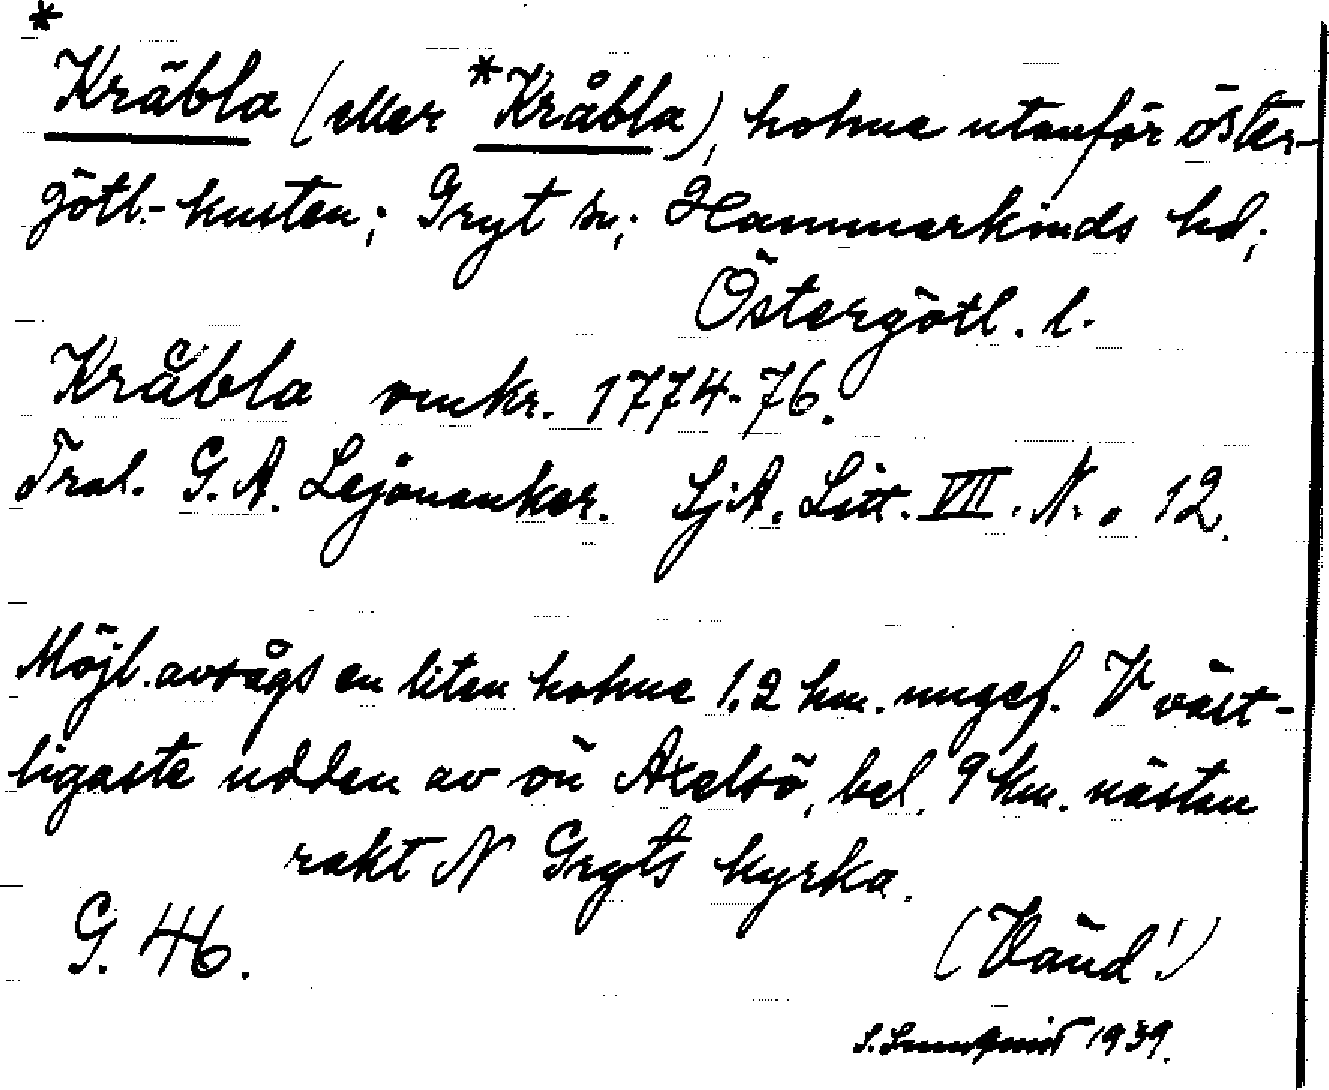 *
Kräbla (eller *Kråbla), holme utanför öster-
götl.-kusten; Gryt sn; Hammarkinds hd;
Östergötl. l.
Kråbla omkr. 1774-76.
Trol. G. A. Lejonanker. SjA. Litt. VII. N. o 12.
Möjl. avsågs en liten holme 1,2 km. ungef. V väst-
ligaste udden av ön Axelsö, bel. 9 km. nästan
rakt N Gryts kyrka.
G. 46.
(Vänd!)
S. Lundqvist 1939.